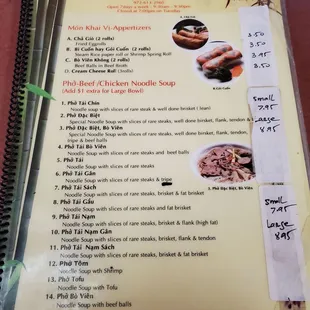 Open 7 days a week • 9:30am - 9:00pm
Closed at 3:00pm on Tuesday
Món Khai Vị-Appertizers
A. Chả Giò (2 rolls)
Fried Eggrolls
B. Bì Cuốn hay Gỏi Cuốn (2 rolls)
Steam Rice paper roll w/ Shrimp Spring Roll
C. Bò Viên Không (2 rolls)
Beef Balls in Beef Broth
D. Cream Cheese Roll (2rolls)
3.50
3.50
3.95
3.50
B.Gỏi Cuốn
Phở-Beef /Chicken Noodle Soup
(Add $1 extra for Large Bowl)
1. Phở Tái Chín
Noodle soup with slices of rare steak & well done brisket ( lean)
2. Phở Đặc Biệt
Special Noodle Soup with slices of rare steaks, well done brisket, flank, tendon & tripe
3. Phở Đặc Biệt, Bò Viên
Special Noodle Soup with slices of rare steaks, well done brisket, flank & tendon,
tripe & beef balls
4. Phở Tái Bò Viên
Noodle soup with slices of rare steaks and beef balls
5. Phở Tái
Noodle soup with slices of rare steaks
6. Phở Tái Gân
Noodle soup with slices of rare steaks & tripe
7. Phở Tái Sách
Noodle soup with slices of rare steaks, brisket & fat brisket
8. Phở Tái Gầu
Noodle soup with slices of rare steaks and fat brisket
9. Phở Tái Nạm
Noodle soup with slices of rare steaks, brisket & flank (high fat)
10. Phở Tái Nạm Gân
Noodle soup with slices of rare steaks, brisket, flank & tendon
11. Phở Tái Nạm Sách
Noodle soup with slices of rare steaks, brisket, flank & tendon
12. Phở Tôm
Noodle Soup wth Shrimp
13. Phở Tofu
Noodle Soup wth Tofu
14. Phở Bò Viên
Noodle Soup with beef balls
3. Phở Đặc Biệt, Bò Viên
Small
7.95
Large
8.95
small
7.95
Large
8.95